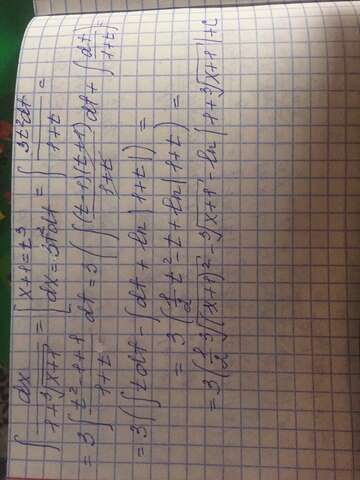 ∫ dx/(1+∛(x+1)) = [x+1=t³ dx=3t²dt] = ∫ 3t²dt/(1+t) =
= 3∫ (t²-1+1)/(1+t) dt = 3(∫ (t-1)(t+1)/(1+t) dt + ∫ dt/(1+t)) =
= 3(∫tdt - ∫dt + ln|1+t|) =
= 3(1/2 t² - t + ln|1+t|) =
= 3(1/2 ∛((x+1)²) - ∛(x+1) - ln|1+∛(x+1)|+C